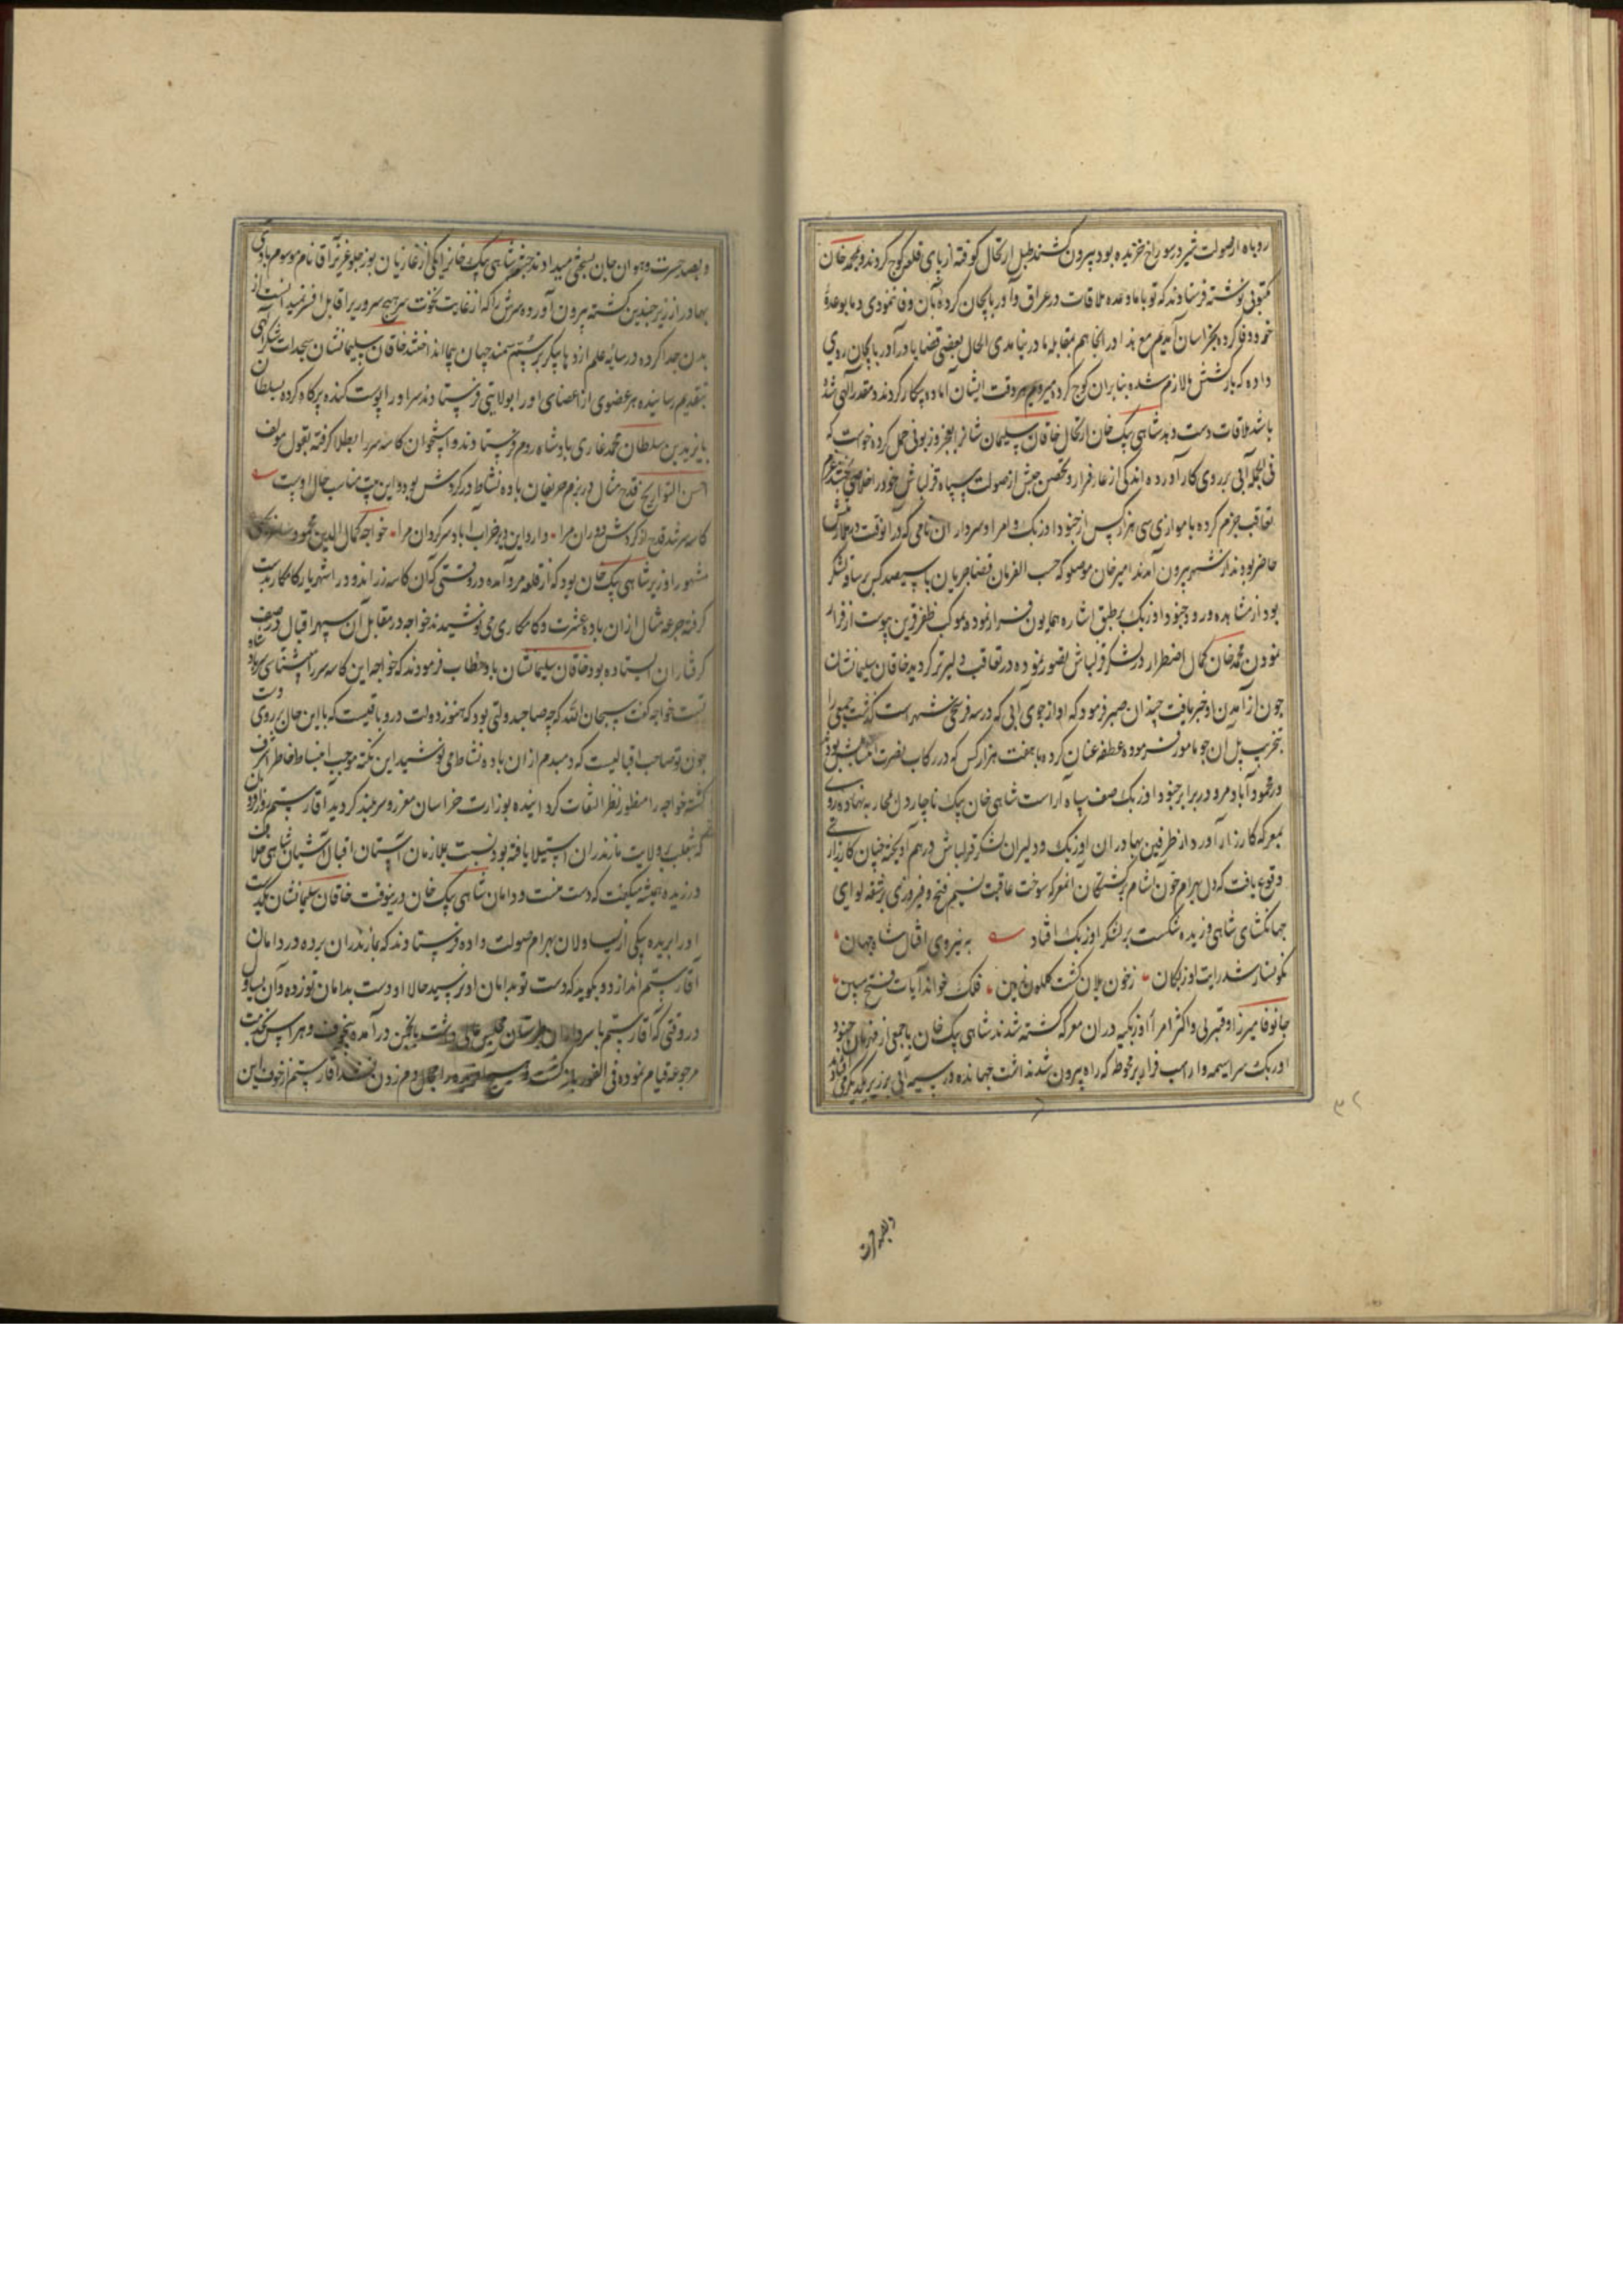 روباه از صولت شیر در سوراخ خزیده بود بیرون کشند طبل ارتحال کوفته از پای قلعه کوچ کردند و بمحمد خان
مکتوبی نوشته فرستادند که تو با ما وعده ملاقات در عراق و آذربایجان کرده بآن وفا ننمودی و ما بوعدهٔ
خود وفا کرده بخراسان آمدیم مع هذا در اینجا هم بمقابله ما در نیامدی الحال بعضی قضایا در آذربایجان روی
داده که بازگشتن ما لازم شده بنابران کوچ کرده میرویم هر وقت ایشان آماده پیکار کردند و مقدر الهی شده
باشد ملاقات دست دهد شاهی بیک خان ارتحال خاقان سلیمان شانرا بعجز و زبونی حمل کرده خواست که
فی الجمله آبی بر روی کار آورده اندکی از عار فرار و تحصن جیش از صولت سپاه قزلباش خود را خلاصی بخشد عزم
تعاقب جزم کرده با موازی سی هزار کس از جنود اوزبک و امرا و سرداران نامی که در آنوقت در ملازمتش
حاضر بودند از شهر بیرون آمدند امیر خان موصلو که حسب الفرمان قضا جریان با سیصد کس بر ساقه لشکر
بود از مشاهده ورود جنود اوزبک بر طبق اشاره همایون فرار نموده بموکب ظفر قرین پیوست از فرار
نمودن محمد خان کمال اضطرار در لشکر قزلباش تصور نموده در تعاقب دلیرتر گردید خاقان سلیمانشان
چون از آمدن او خبر یافت چندان صبر فرمود که او از جوی آبی که در سه فرسخی شهر است گذشت جمعی را
بتخریب پل آن جو مامور فرموده عطفه عنان کرده با هفت هزار کس که در رکاب نصرت انتساب بودند
در محمودآباد مرو در برابر جنود اوزبک صف سپاه اراست شاهی خان بیک ناچار دل بمحاربه نهاده روی
بمعرکه کارزار آورد از طرفین بهادران اوزبک و دلیران لشکر قزلباش در هم آویخته چنان کارزاری
وقوع یافت که دل بهرام خون آشام بر کشتگان آنمعرکه سوخت عاقبت نسیم فتح و فیروزی بر شقه لوای
جهانگشای شاهی وزیده شکست بر لشکر اوزبک افتاد به نیروی اقبال شاه جهان
نگونسار شد رایت اوزبکان ز خون یلان گشت گلگون زمین فلک خواند آیات فتح مبین
جانوفا میرزا و قنبر بی و اکثر امراء اوزبکیه در آن معرکه کشته شدند شاهی بیک خان با جمعی از جنود
اوزبک سراسیمه وار اسب فرار بر محوطه که راه بیرون شد نداشت جهانده در سیه آبی بر زیر یکدیگر می افتادند
۳۲
و بصد حسرت
و بصد حسرت و هوان جان بسختی میدادند جثه شاهی بیک خانرا یکی از غازیان بوزجلو عزیز آقا نام موسوم بآدی
بهادر از زیر چندین کشته بیرون آورده سرش را که از غایت نخوت سر هیچ سروریرا قابل افسر نمیدانست از
بدن جدا کرده در سایه علم اژدها پیکر بر سم سمند جهان پیما انداختند خاقان سلیمانشان سجدات شکر الهی
بتقدیم رسانیده هر عضوی از اعضای او را بولایتی فرستادند سر او را پوست کنده پر کاه کرده بسلطان
بایزید بن سلطان محمد غازی پادشاه روم فرستادند و استخوان کاسه سر را بطلا گرفته بقول مولف
احسن التواریخ قدح مثال در بزم حریفان باده نشاط در گردش بود و این بیت مناسب حال اوست
کاسه سر شد قدح از گردش دوران مرا دارد این دیر خراب آباد سرگردان مرا خواجه کمال الدین محمود ساغرجی
مشهور وزیر شاهی بیک خان بود که از قلعه مرو آمده در وقتی که آن کاسه زر اندود را شهریار کامکار بدست
گرفته جرعه مثال از ان باده عشرت و کامکاری می نوشیدند خواجه در مقابل آن سپهر اقبال در صف
گرفتاران ایستاده بود خاقان سلیمانشان باو خطاب فرمودند که خواجه این کاسه سر را میشناسی سر پادشاه
تست خواجه گفت سبحان الله که چه صاحبدولتی بود که هنوز دولت در و باقیست که با این حال بر روی دست
چون تو صاحب اقبالیست که دمبدم از ان باده نشاط می نوشید این نکته موجب انبساط خاطر اشرف
گشته خواجه را منظور نظر التفات گردانیده بوزارت خراسان معزز و سربلند گردید آقا رستم روزافزون
که بتغلب بر ولایت مازندران استیلا یافته بود نسبت بملازمان آستان اقبال آشیان شاهی خلاف
ورزیده همیشه میگفت که دست منست و دامان شاهی بیک خان درینوقت خاقان سلیمانشان یکدست
او را بریده بیکی از یساولان بهرام صولت داده فرستادند که بمازندران برده در دامان
آقا رستم اندازد و بگوید که دست تو بدامان او نرسید حالا او دست بدامان تو زده و آن یساول
در وقتی که آقا رستم با سرداران طبرستان مجلس عالی داشت بانجمن درآمده بیخوف و هراس بخدمت
مرجوعه قیام نموده فی الفور بازگشت و هیچ احدی را مجال دم زدن نشد آقا رستم از خوف این